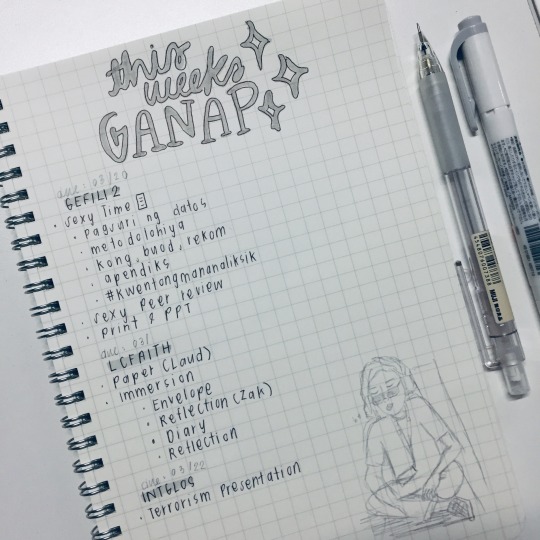 this
weeks
GANAP
due: 03/20
GEFILI 2
• sexy Time
• pagsuri ng datos
• metodolohiya
• kong, buod, rekom
• apendiks
• #kwentongmananaliksik
• sexy peer review
• print & PPT
due: 03/
LCFAITH
• Paper (Laud)
• Immersion
• Envelope
• Reflection (Zak)
• Diary
• Reflection
due: 03/22
INTGLOS
• Terrorism Presentation